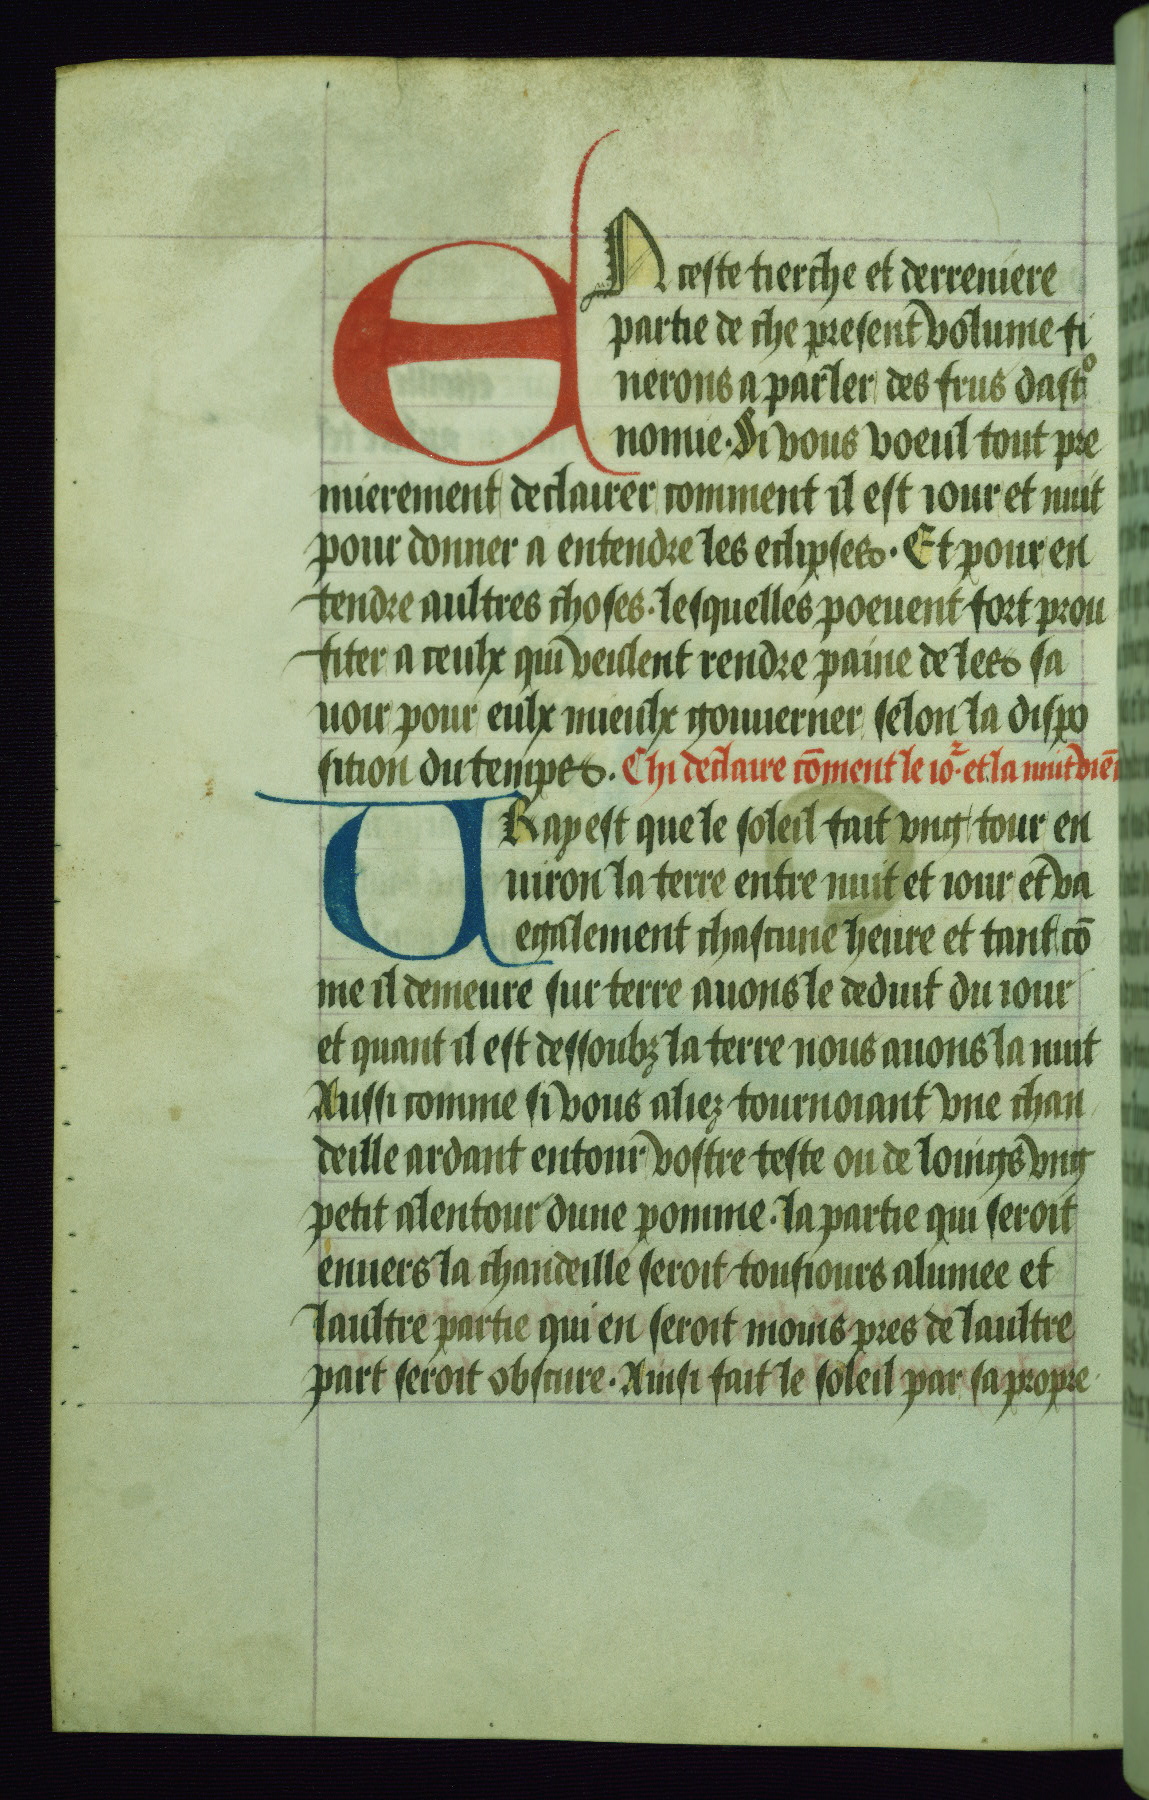 EN ceste tierche et derreniere
partie de che present volume fi
nerons a parler des frus dastᵒ
nomie. Si vous voeul tout pre
mierement declairer comment il est iour et nuit
pour donner a entendre les eclipses. Et pour en
tendre aultres choses. lesquelles poeuent fort prou
fiter a ceulx qui veulent rendre paine de les sa
uoir pour eulx mieulx gouuerner selon la dispo
sition du temps. Chi declaire cōment le ioᷣ. et la nuit viēt
URay est que le soleil fait vng tour en
uiron la terre entre nuit et iour et va
egalement chascune heure et tant cō
me il demeure sur terre auons le deduit du iour
et quant il est dessoubz la terre nous auons la nuit
Aussi comme si vous aliez tournoiant vne chan
deille ardant entour vostre teste ou de loings vng
petit alentour dune pomme. la partie qui seroit
enuers la chandeille seroit tousiours alumee et
laultre partie qui en seroit moins pres de laultre
part seroit obscure. Ainsi fait le soleil par sa propre